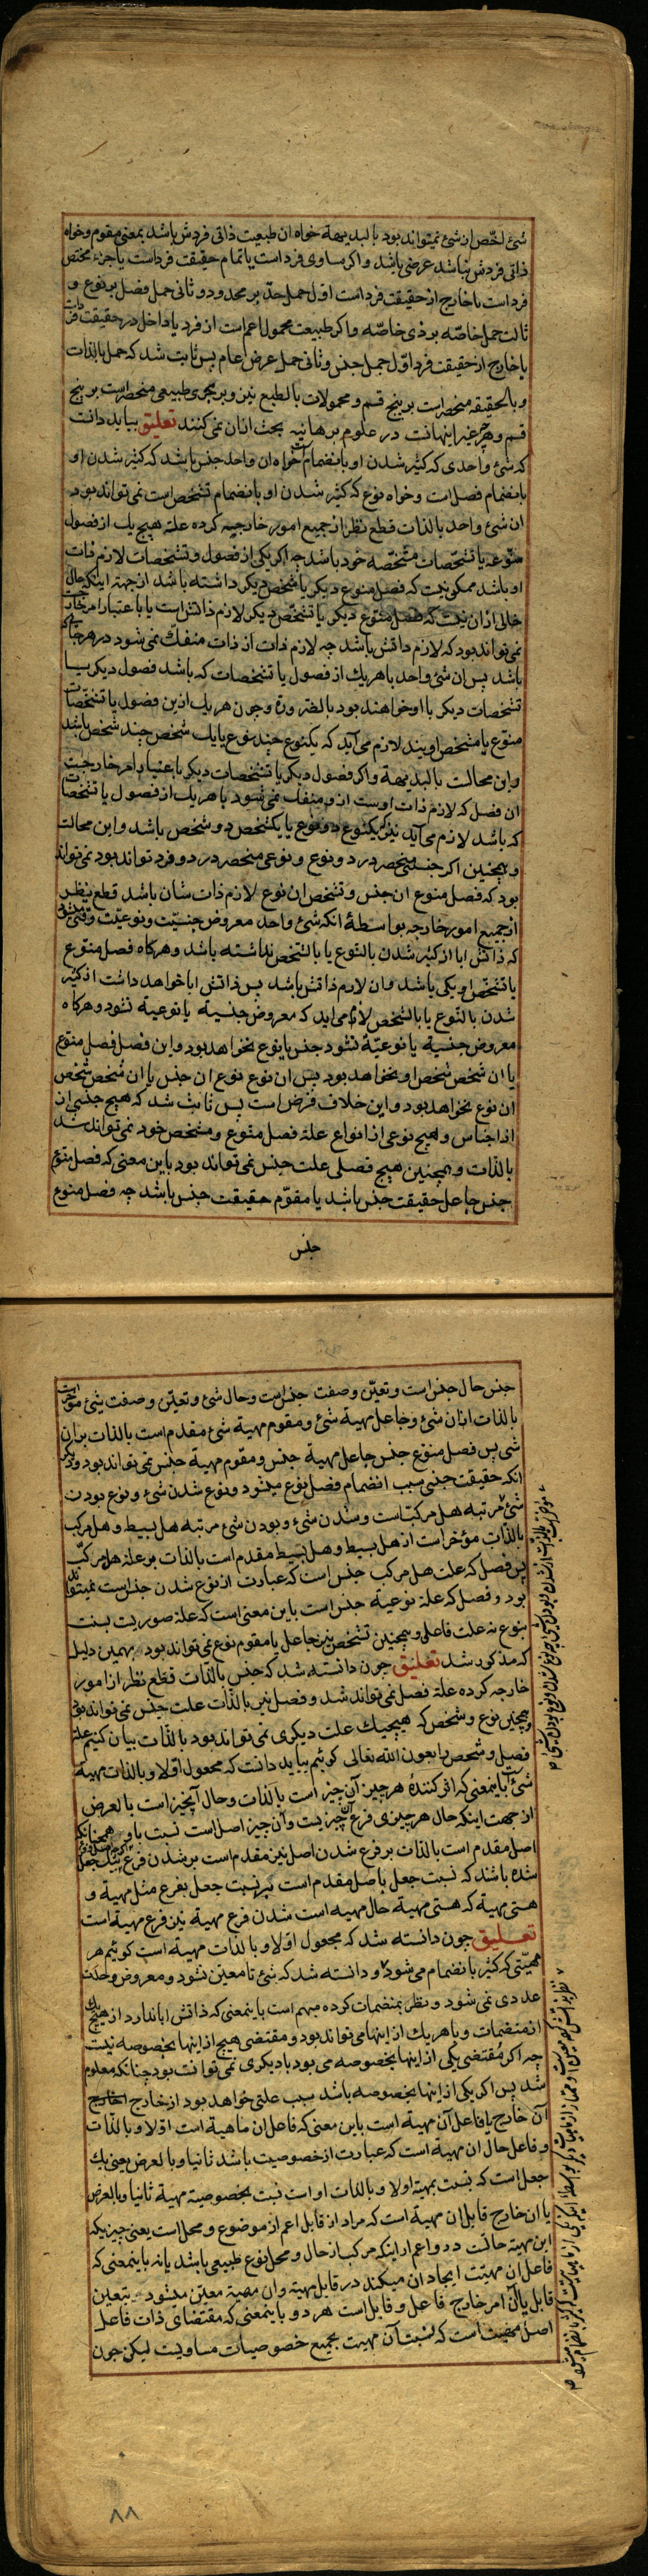 شئ اخصّ ازان شئ نمیتواند بود بالبدیهة خواه ان طبیعت ذاتی فردش باشد بمعنی مقوم و خواه
ذاتی فردش نباشد عرضی باشد و اکر مساوی فرد است یا تمام حقیقت فرد است یا جزء مختص
فرد است یا خارج از حقیقت فرد است اول حمل حدّ بر محدود و ثانی حمل فصل بر نوع و
ثالث حمل خاصّه بر ذی خاصّه و اکر طبیعت محمول اعم است از فرد یا داخل در حقیقت فرد
یا خارج از حقیقت فرد اوّل حمل جنس و ثانی حمل عرض عام پس ثابت شد که حمل بالذات
و بالحقیقه منحصر است بر پنج قسم و محمولات بالطبع نیز بر مجری طبیعی منحصر است بر پنج
قسم و هرچه غیر اینهاست در علوم برهانیه بحث ازان نمی کنند تعلیق بباید دانست
که شئ واحدی که کثیر شدن او بانضمام است خواه ان واحد جنس باشد که کثیر شدن او
بانضمام فصل است و خواه نوع که کثیر شدن او بانضمام تشخص است نمی تواند بود
ان شئ واحد بالذات قطع نظر از جمیع امور خارجیه کرده علة هیچ یک از فصول
منوّعه یا تشخّصات مشخّصه خود باشد چه اکر یکی از فصول و تشخصات لازم ذات
او باشد ممکن نیست که فصل منوع دیکر یا شخص دیکر داشته باشد از جهة اینکه حال
خالی ازان نیست که فصل منوّع دیکر یا تشخّص دیکر لازم ذاتش است یا باعتبار امر خارج
نمی تواند بود که لازم ذاتش باشد چه لازم ذات از ذات منفکّ نمی شود در هرجا که
باشد پس ان شئ واحد با هر یک از فصول یا تشخصات که باشد فصول دیکر یا
تشخصات دیکر با او خواهند بود بالضرورة و چون هر یک ازین فصول یا تشخصات
منوّع یا مشخص اویند لازم می آید که یکنوع چند نوع یا یک شخص چند شخص باشد
و این محالست بالبدیهة و اکر فصول دیکر یا تشخصات دیکر باعتبار امر خارجست
ان فصل که لازم ذات اوست ازو منفک نمی شود با هر یک از فصول یا تشخصات
که باشد لازم می آید نیز که یکنوع دو نوع یا یکشخص دو شخص باشد و این محالست
و همچنین اکر جنسی منحصر در دو نوع و نوعی منحصر در دو فرد تواند بود نمی تواند
بود که فصل منوع ان جنس و تشخص ان نوع لازم ذات شان باشد قطع نظر
از جمیع امور خارجه بواسطة انکه شئ واحد معروض جنسیّت و نوعیّت وقتی میشود
که ذاتش ابا از کثیر شدن بالنوع یا بالتشخص نداشته باشد و هرکاه فصل منوّع
یا تشخّص او یکی باشد و ان لازم ذاتش باشد پس ذاتش ابا خواهد داشت از کثیر
شدن بالنّوع یا بالتشخص لازم می اید که معروض جنسیة یا نوعیة نشود و هرکاه
معروض جنسیة یا نوعیّة نشود جنس یا نوع نخواهد بود و این فصل فصل منوّع
یا ان شخص شخص او نخواهد بود پس ان نوع نوع ان جنس یا ان شخص شخص
ان نوع نخواهد بود و این خلاف فرض است پس ثابت شد که هیچ جنسی از
اجناس و هیچ نوعی از انواع علة فصل منوع و مشخص خود نمی تواند شد
بالذات و همچنین هیچ فصلی علت جنس نمی تواند بود باین معنی که فصل منوّع
جنس جاعل حقیقت جنس باشد یا مقوّم حقیقت جنس باشد چه فصل منوع
جنس
جنس حال جنس است و تعیّن و صفت جنس است و حال شئ و تعیّن و صفت شئ مؤخر است
بالذات ازان شئ و جاعل مهیة شئ و مقوم مهیة شئ مقدم است بالذات بران
شئ پس فصل منوّع جنس جاعل مهیة جنس و مقوم مهیة جنس نمی تواند بود و دیکر
انکه حقیقت جنس بسبب انضمام فصل نوع میشود و نوع شدن شئ و نوع بودن
شئ مرتبه هل مرکبست و شدن شئ و بودن شئ مرتبه هل بسیط و هل مرکب
بالذات مؤخر است از هل بسیط و هل بسیط مقدم است بالذات بر علة هل مرکب
پس فصل که علت هل مرکب جنس است که عبارت از نوع شدن جنس است نمیتواند
بود و فصل که علة نوعیة جنس است باین معنی است که علة صوریست نسبت
بنوع نه علت فاعلی و همچنین تشخص نیز جاعل یا مقوم نوع نمی تواند بود بهمین دلیل
که مذکور شد تعلیق چون دانسته شد که جنس بالذات قطع نظر از امور
خارجه کرده علة فصل نمی تواند شد و فصل نیز بالذات علت جنس نمی تواند بود
و همچنین نوع و شخص که هیچیک علت دیکری نمی تواند بود بالذات بیان کنیم علة
فصل و شخص را بعون الله تعالی کوئیم بباید دانست که مجعول اولا و بالذات مهیة
شئ است باینمعنی که اثر کنندهٔ هر چیز آن چیز است بالذات و حال آنچیز است بالعرض
از جهت اینکه حال هر چیزی فرع آن چیزیست و آن چیز اصل است نسبت باو همچنانکه
اصل مقدم است بالذات بر فرع شدن اصل نیز مقدم است بر شدن فرع
شده باشد که نسبت جعل باصل مقدم است بر نسبت جعل بفرع مثل مهیة و
هستی مهیة که هستی مهیة حال مهیة است شدن فرع مهیة نیز فرع مهیة است
تعلیق چون دانسته شد که مجعول اولا و بالذات مهیة است کوئیم هر
مهیّتی که کثیر بانضمام می شود و دانسته شد که شئ تا معین نشود و معروض وحدت
عددی نمی شود و نظر بمنضمات کرده مبهم است باینمعنی که ذاتش ابا ندارد از هیچ یک
از منضمات و با هر یک از اینها می تواند بود و مقتضی هیچ از اینها بخصوصه نیست
چه اکر مقتضی یکی از اینها بخصوصه می بود با دیکری نمی توانست بود چنانکه معلوم
شد پس اکر یکی از اینها بخصوصه باشد بسبب علتی خواهد بود از خارج
آن خارج یا فاعل آن مهیة است باین معنی که فاعل ان ماهیة است اولا و بالذات
و فاعل حال ان مهیة است که عبارت از خصوصیت باشد ثانیا و بالعرض یعنی یک
جعل است که نسبت بمهیة اولا و بالذات او است نسبت بخصوصیة مهیة ثانیا و بالعرض
یا ان خارج قابل ان مهیة است که مراد از قابل اعم از موضوع و محل است یعنی چیزیکه
این مهیة حالست درو و اعم از اینکه مرکب از حال و محل نوع طبیعی باشد یا نه باینمعنی که
فاعل ان مهیّت ایجاد ان میکند در قابل مهیة و ان مهیة معیّن میشود بتعین
قابل یا آن امر خارج فاعل و قابل است هر دو باینمعنی که مقتضای ذات فاعل
اصل مهیّت است که نسبت آن مهیت بجمیع خصوصیات مساویست لیکن چون
۸۸